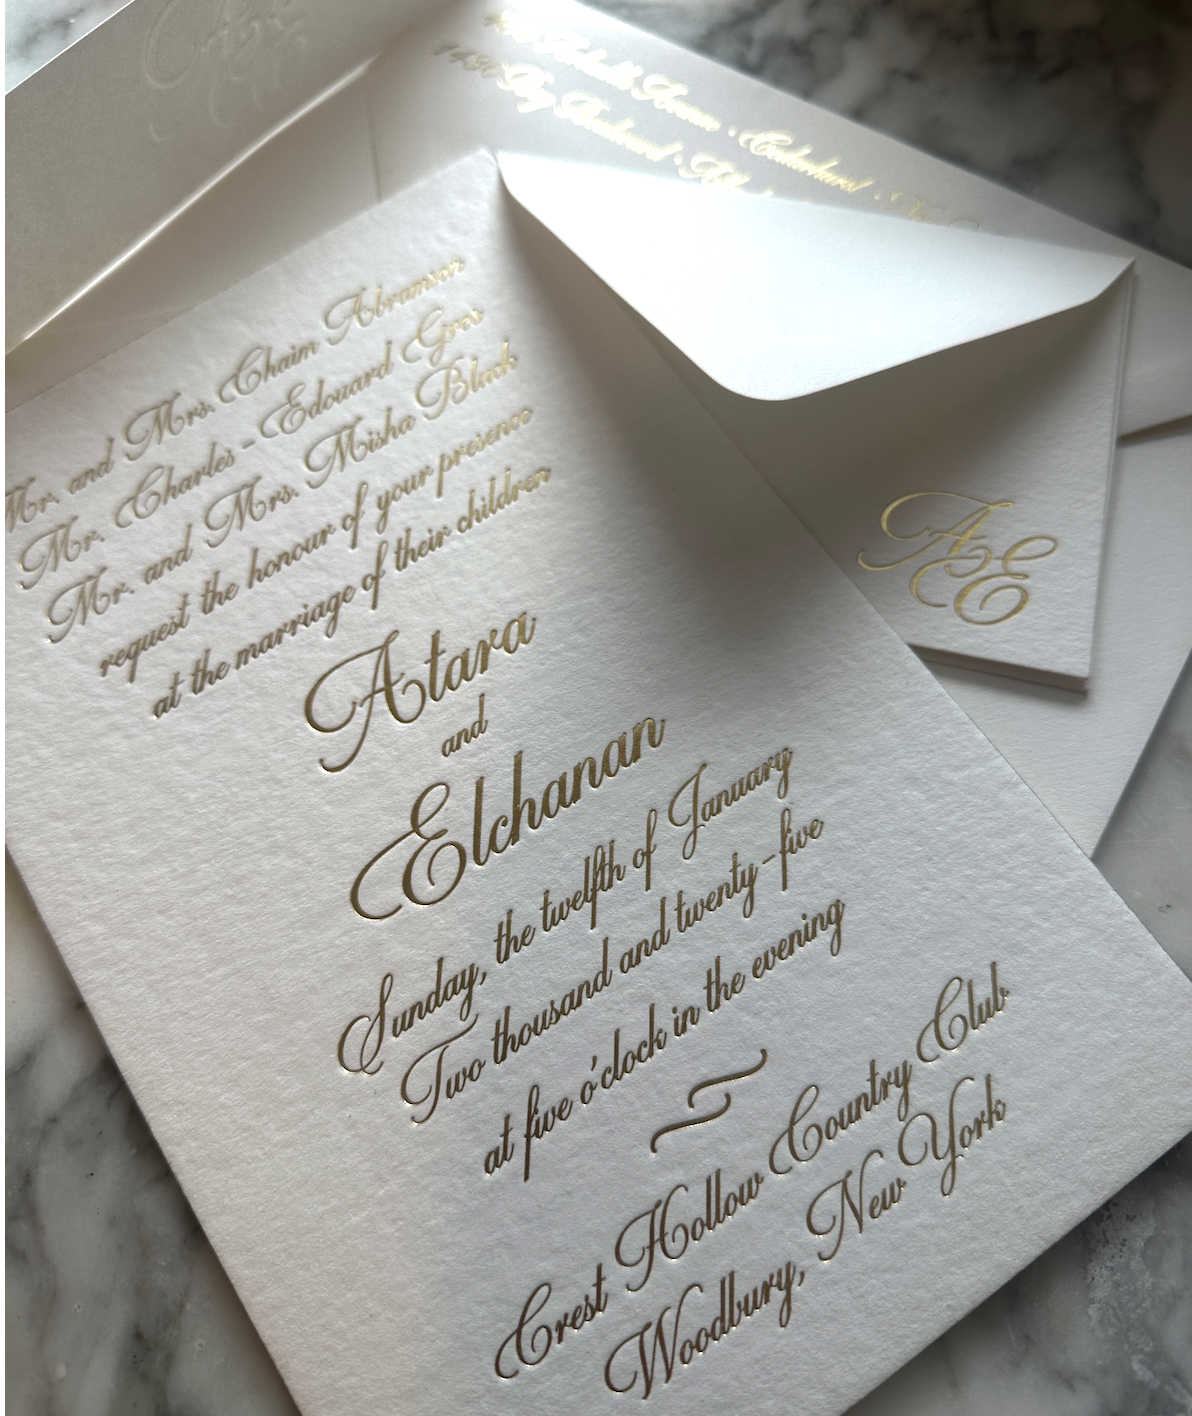 Cedarhurst
Mr. and Mrs. Chaim Abramson
Mr. Charles-Edouard Gros
Mr. and Mrs. Misha Black
request the honour of your presence
at the marriage of their children
Atara
and
Elchanan
Sunday, the twelfth of January
Two thousand and twenty-five
at five o'clock in the evening
Crest Hollow Country Club
Woodbury, New York
AE